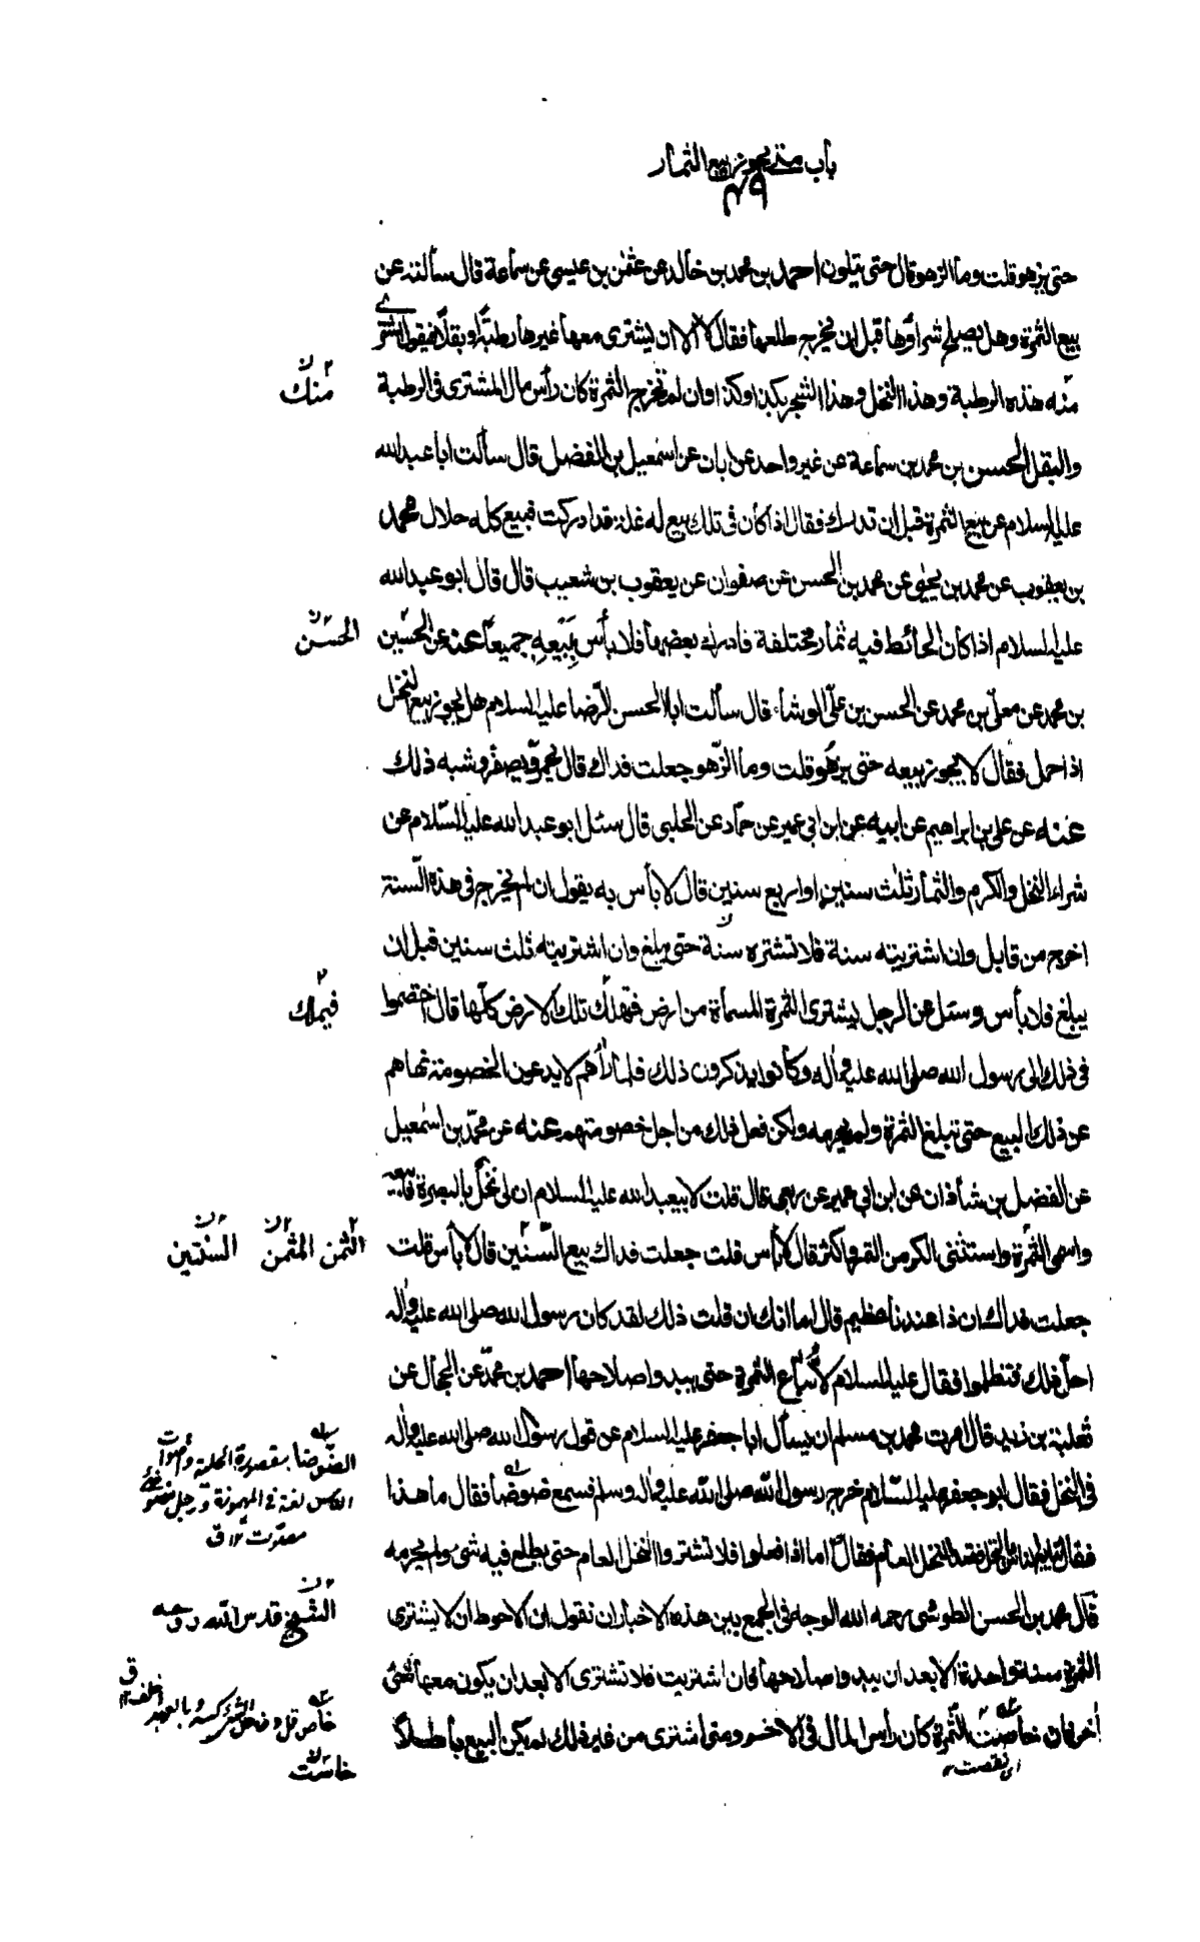 باب متى يجوز بيع الثمار
٤٩
حتى يزهو قلت وما الزهو قال حتى يتلون احمد بن محمد بن خالد عن عثمن بن عيسى عن سماعة قال سألته عن
بيع الثمرة وهل يصلح شراؤها قبل ان يخرج طلعها فقال لا الا ان يشترى معها غيرها رطبة او بقلا فيقول اشترى
منه هذه الرطبة وهذا النخل وهذا الشجر بكذا وكذا وان لم تخرج الثمرة كان رأس مال المشترى فى الرطبة
منك
والبقل الحسن بن محمد بن سماعة عن غير واحد عن ابان عن اسمعيل بن الفضل قال سألت ابا عبدالله
عليه السلام عن بيع الثمرة قبل ان تدرك فقال اذا كان فى تلك بيع له غلة قد ادركت فبيع كله حلال محمد
بن يعقوب عن محمد بن يحيى عن محمد بن الحسن عن صفوان عن يعقوب بن شعيب قال قال ابو عبدالله
عليه السلام اذا كان الحائط فيه ثمار مختلفة فادرك بعضها فلا بأس بِبَيْعِهِ جميعاً عنه عن الحسين
الحسن
بن محمد عن معلى بن محمد عن الحسن بن علىّ الوشاء قال سألت ابا الحسن الرّضا عليه السلام هل يجوز بيع النخل
اذا حمل فقال لا يجوز بيعه حتى يزهُو قلت وما الزّهو جعلت فداك قال يحمرّ ويصفرّ وشبه ذلك
عنه عن على بن ابراهيم عن ابيه عن ابن ابى عمير عن حمّاد عن الحلبى قال سئل ابو عبد الله عليه السّلام عن
شراء النخل والكرم والثمار ثلث سنين او اربع سنين قال لا بأس به يقول ان لم يخرج فى هذه السّنة
اخرج من قابل وان اشتريته سنة فلا تشتره سنة حتى يبلغ وان اشتريته ثلث سنين قبل ان
يبلغ فلا بأس وسئل عن الرجل يشترى الثمرة المسماة من ارض فتهلك تلك الارض كلّها قال اختصموا
فيهلك
فى ذلك الى رسول الله صلى الله عليه وآله وكانوا يذكرون ذلك فلما رآهم لا يدعون الخصومة نهاهم
عن ذلك البيع حتى تبلغ الثمرة ولم يحرمه ولكن فعل ذلك من اجل خصومتهم عنه عن محمّد بن اسمعيل
عن الفضل بن شاذان عن ابن ابى عمير عن ربعى قال قلت لابيعبد الله عليه السلام ان لى نخلا بالبصرة فابيعه
واسمى الثمرة واستثنى الكر من التمر او اكثر قال لا بأس قلت جعلت فداك بيع السّنتين قال لا بأس قلت
الثمن المثمن السنتين
جعلت فداك ان ذا عندنا عظيم قال اما انك ان قلت ذلك لقد كان رسول الله صلى الله عليه وآله
احلّ ذلك فتظلموا فقال عليه السلام لا تُباع الثمرة حتى يبدو صلاحها احمد بن محمّد عن الحجال عن
ثعلبة بن زيد قال امرت محمد بن مسلم ان يسأل ابا جعفر عليه السلام عن قول رسول الله صلى الله عليه وآله
فى النخل فقال ابو جعفر عليه السّلام خرج رسول الله صلى الله عليه وآله وسلم فسمع ضوضأ فقال ما هذا
الضوضا مقصورة الجلبة واصوات
الناس لغة فى المهموزة ورجل مضوض
مصوّت ١٢ ق
فقال تبايع الناس بالنخل فقعد النخل العام فقال اما اذا فعلوا فلا تشتروا النخل العام حتى يطلع فيه شئ ولم يحرمه
قال محمد بن الحسن الطوسى رحمه الله الوجه فى الجمع بين هذه الاخبار ان نقول ان الاحوط ان لا يشترى
الشيخ قدس الله روحه
الثمرة سنة واحدة الا بعد ان يبدو صلاحها فان اشتريت فلا تشترى الا بعد ان يكون معها شئ
آخر فان خاصت الثمرة كان رأس المال فى الاخر ومتى اشترى من غير ذلك لم يكن البيع باطلاً
اى نقصت
خاست